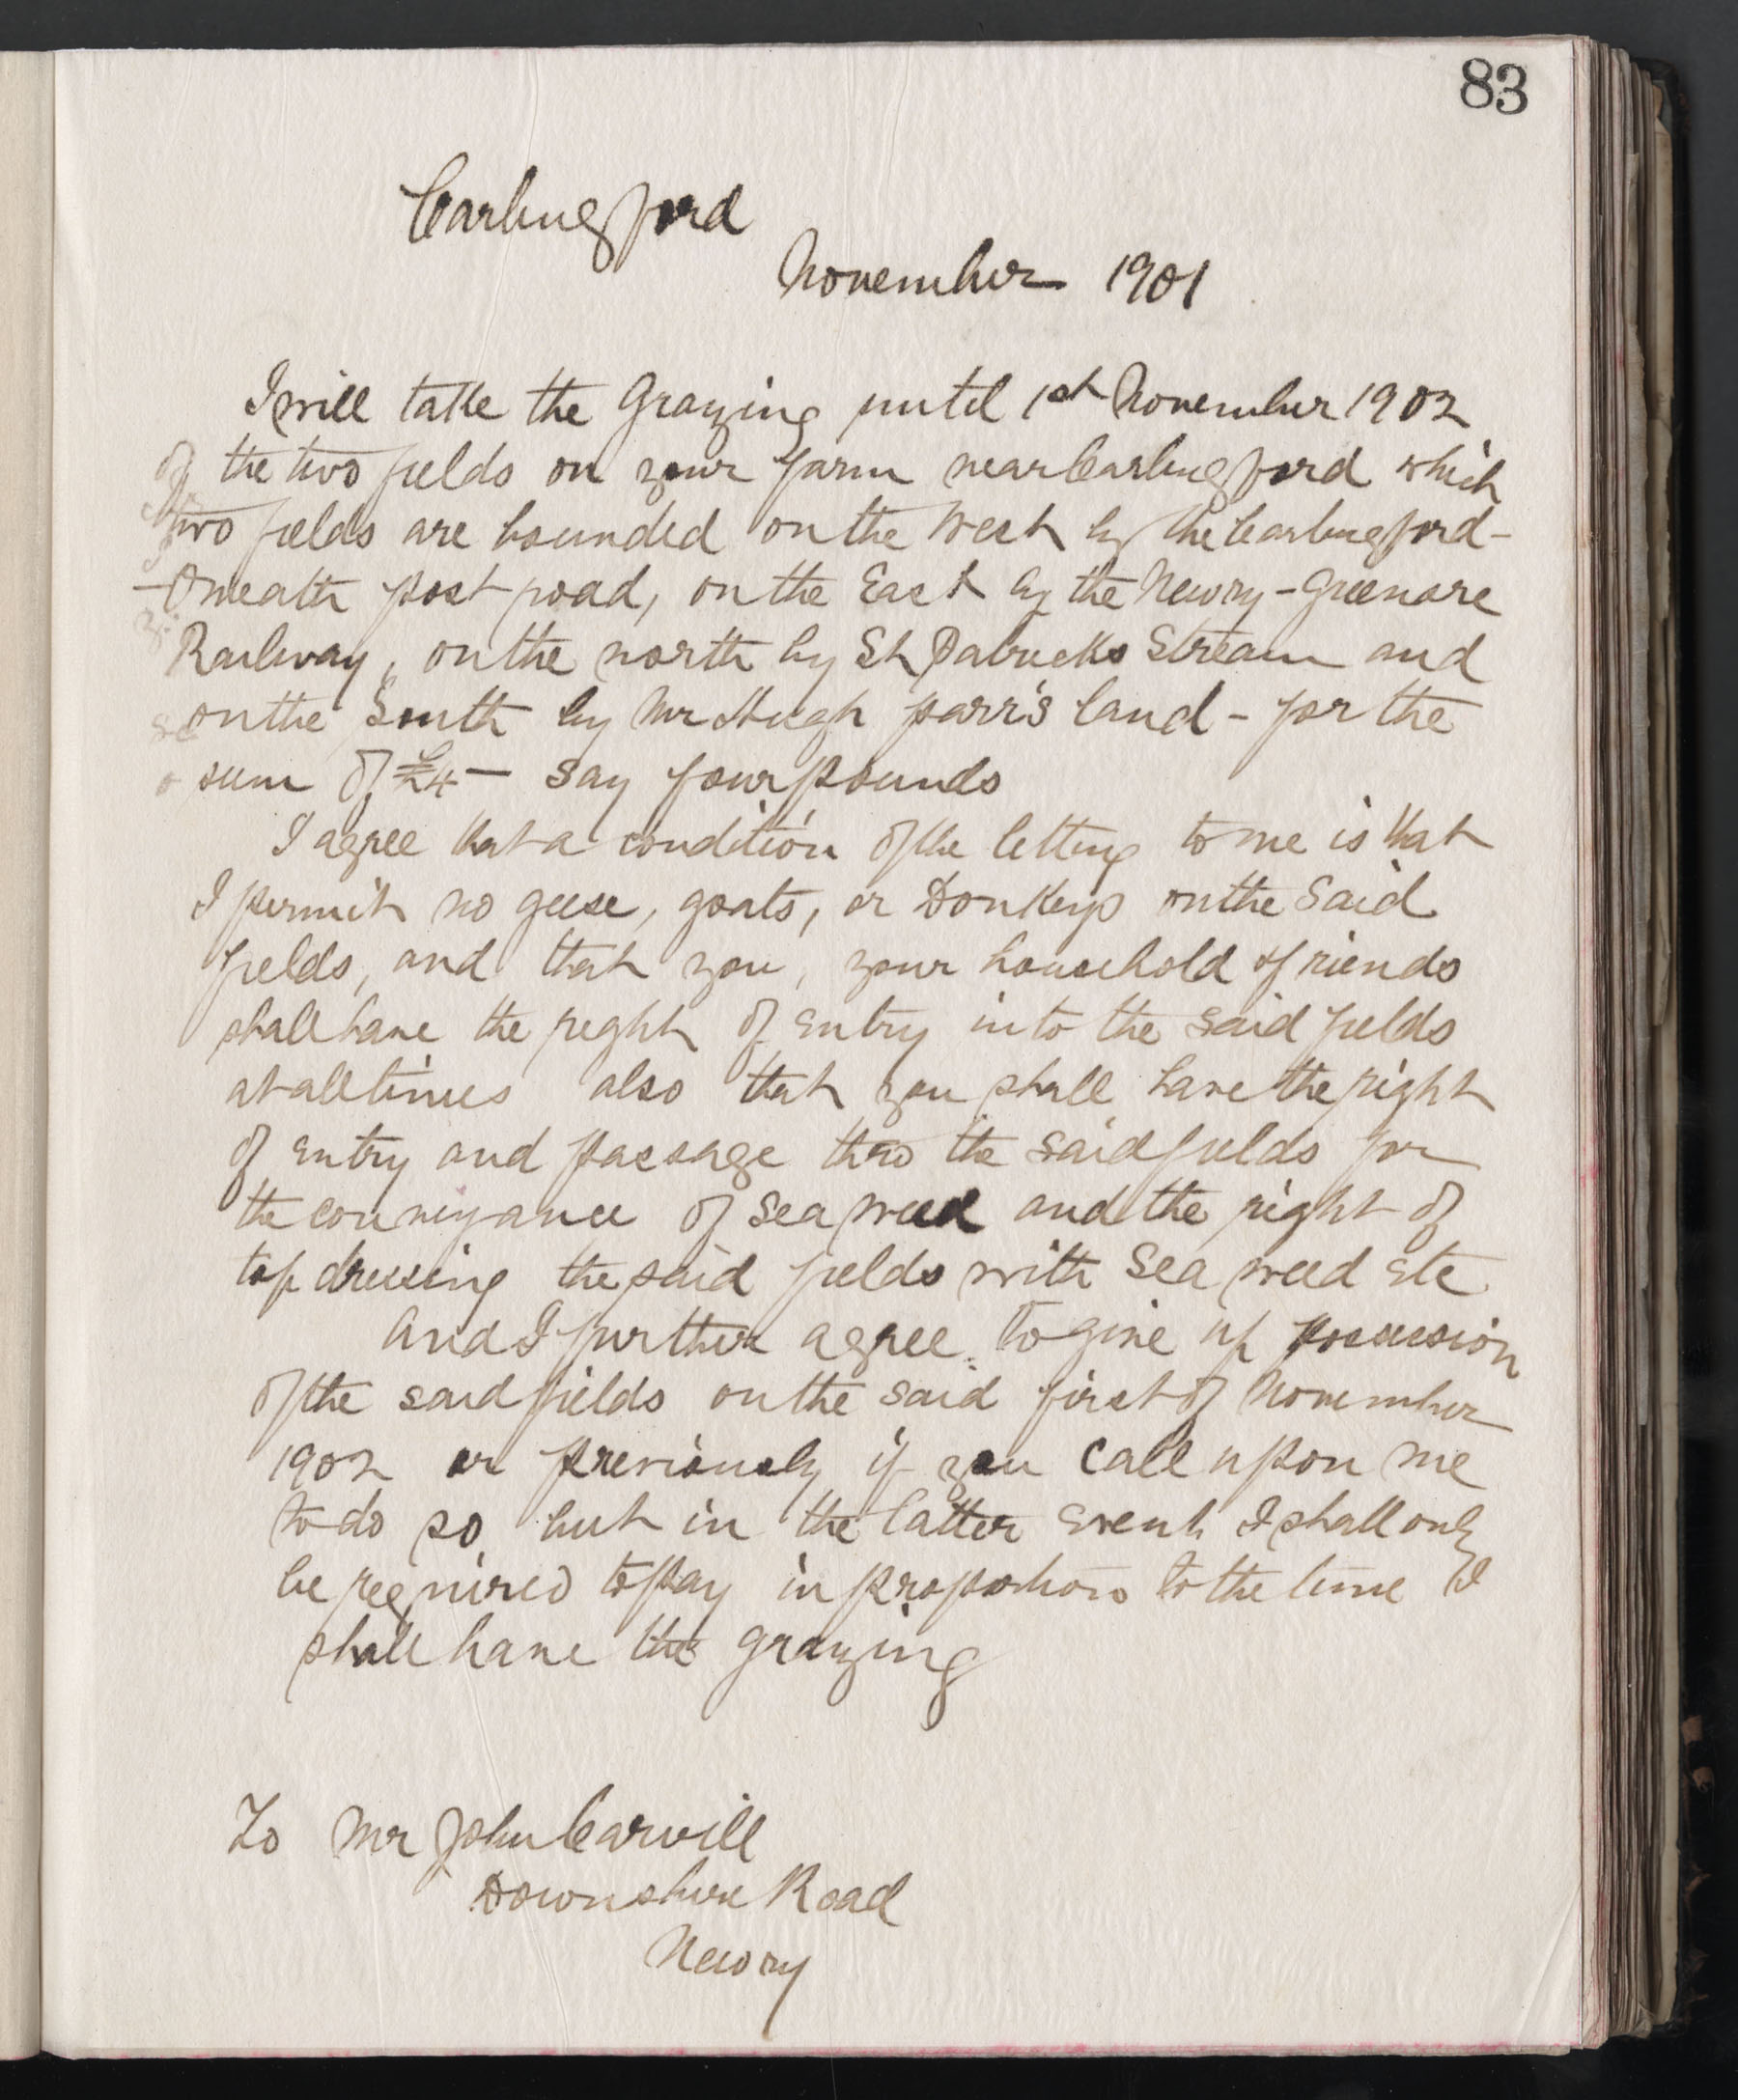 83
Carlingford
November 1901
I will take the Grazing until 1st November 1902
of the two fields on your farm near Carlingford which
two fields are bounded on the West by the Carlingford-
-Omeath post road, on the East by the Newry-Greenore
Railway, on the north by St Patricks Stream and
on the South by Mr Hugh parr's land - for the
sum of £4 — say four pounds
I agree that a condition of the letting to me is that
I permit no geese, goats, or Donkeys on the Said
fields, and that you, your household & friends
shall have the right of entry into the said fields
at all times also that you shall have the right
of entry and passage thro the said fields for
the conveyance of Sea weed and the right of
top dressing the said fields with Sea weed etc
And I further agree to give up possession
of the said fields on the said first of November
1902 or previously if you Call upon me
to do so but in the latter event I shall only
be required to pay in proportion to the time I
shall have the grazing
To Mr John Carvill
Downshire Road
Newry